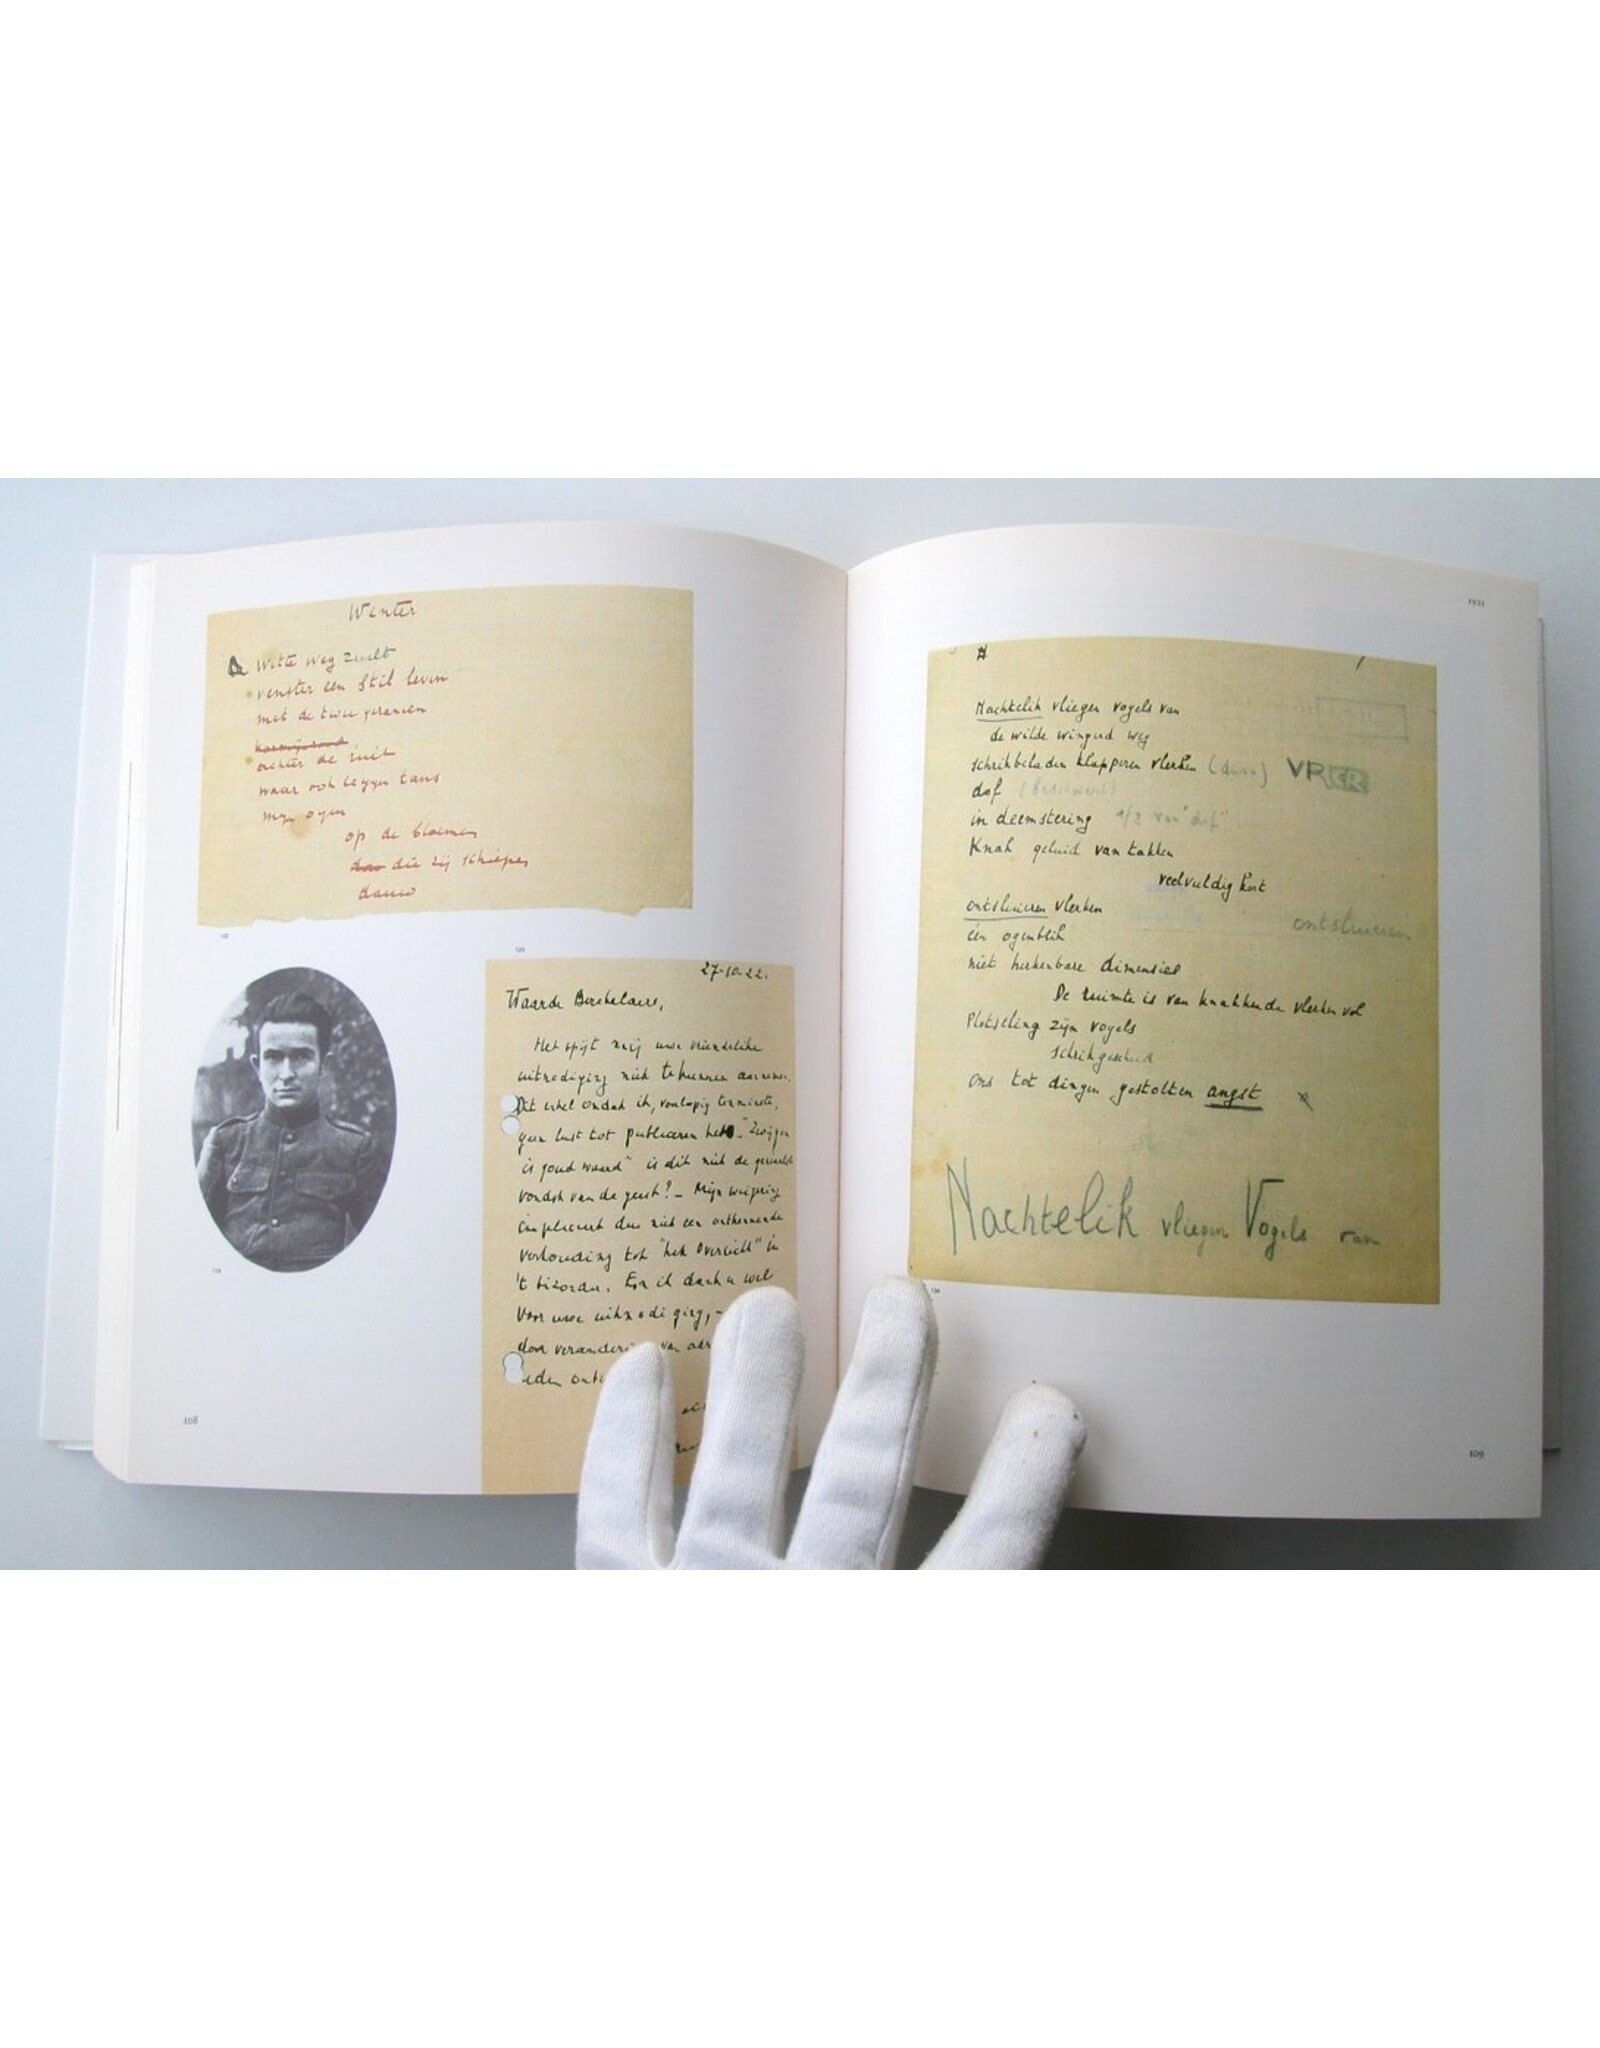 Winter
De witte weg zuilt
venster een stil leven
met de twee geranien
karmijnrood
achter de ruit
waar ook leggen tans
mijn ogen
op de bloemen
die zij schiepen
dauw
122
123
27-10-22.
Waarde Berckelaers,
Het spijt mij uwe vriendelike
uitnodiging niet te kunnen aannemen.
Dit enkel omdat ik, voorlopig tenminste,
geen lust tot publiceren heb. "Zwijgen
is goud waard" is dit niet de
vondst van de geest? - Mijn weigering
impliceert dus niet een ontkennende
verhouding tot "het Overzicht" in
't bizonder. En ik dank u wel
voor uwe uitnodiging, -
door verandering van
108
1921
Nachtelik vliegen vogels van
de wilde wingerd weg
schrikbeladen klapperen vlerken
VR
dof
in deemstering 1/2 van "dof"
Knak geluid van takken
veelvuldig kort
ontsluieren vlerken
ontsluieren
één ogenblik
niet herkenbare dimensies
De ruimte is van knakkende vlerken vol
Plotseling zijn vogels
schrikgescheid
ons tot dingen gestolten angst
Nachtelik vliegen Vogels van
124
109